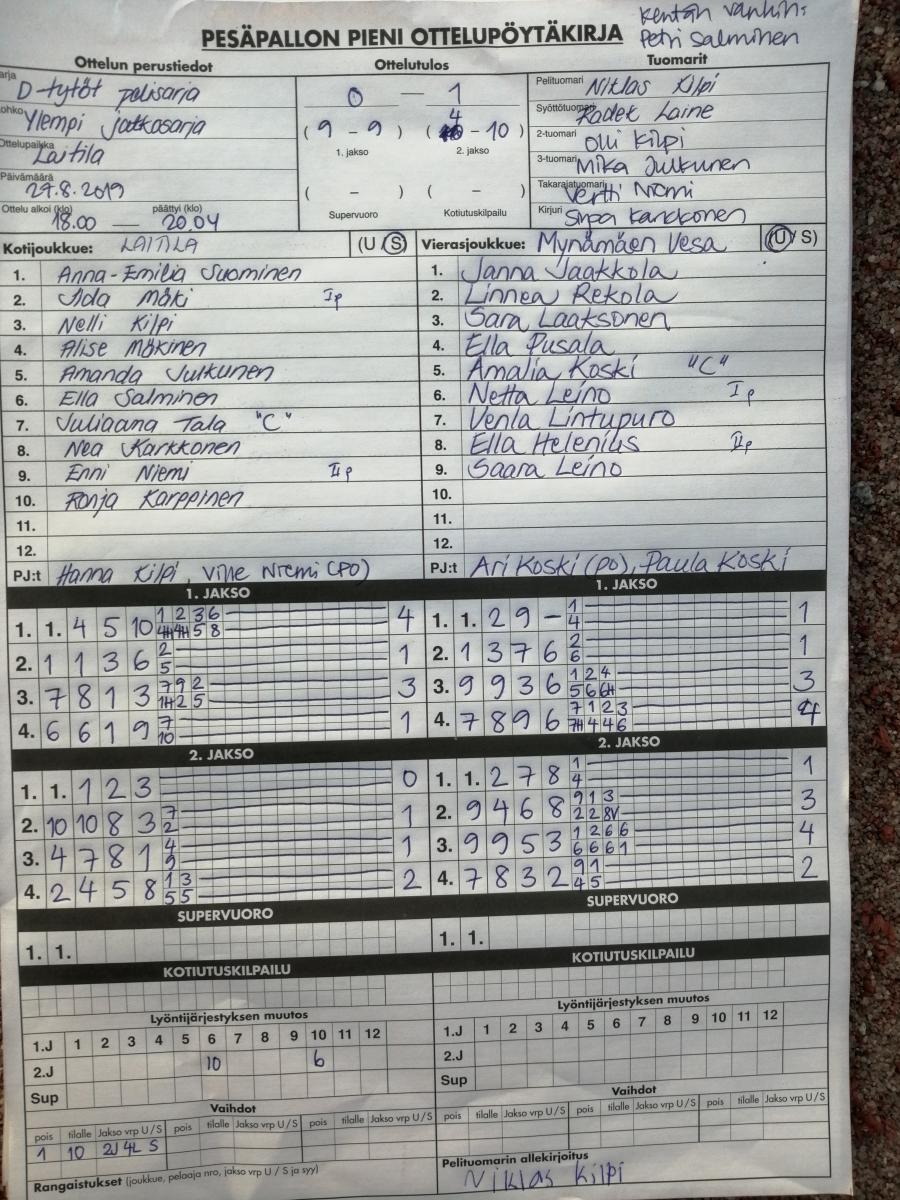 Kentän vanhin:
Petri Salminen
PESÄPALLON PIENI OTTELUPÖYTÄKIRJA
Ottelun perustiedot
Ottelutulos
Tuomarit
arja D-tytöt pelisarja
ohko Ylempi jatkosarja
Ottelupaikka Laitila
Päivämäärä 27.8.2019
Ottelu alkoi (klo) päättyi (klo)
18.00 — 20.04
0 — 1
( 9 - 9 ) ( 4 - 10 )
1. jakso 2. jakso
( - ) ( - )
Supervuoro Kotiutuskilpailu
Pelituomari Niklas Kilpi
Syöttötuomari Radek Laine
2-tuomari Olli Kilpi
3-tuomari Mika Julkunen
Takarajatuomari Vertti Niemi
Kirjuri Sirpa Karkkonen
Kotijoukkue: LAITILA (U / S)
1. Anna-Emilia Suominen
2. Iida Mäki Ip
3. Nelli Kilpi
4. Alise Mäkinen
5. Amanda Julkunen
6. Ella Salminen
7. Juliaana Tala "C"
8. Nea Karkkonen
9. Enni Niemi IIp
10. Ronja Karppinen
11.
12.
PJ:t Hanna Kilpi, Ville Niemi (PO)
Vierasjoukkue: Mynämäen Vesa (U / S)
1. Janna Jaakkola
2. Linnea Rekola
3. Sara Laaksonen
4. Ella Pusala
5. Amalia Koski "C"
6. Netta Leino Ip
7. Venla Lintupuro
8. Ella Helenius IIp
9. Saara Leino
10.
11.
12.
PJ:t Ari Koski (PO), Paula Koski
1. JAKSO
1. 1. 4 5 10 1 2 3 6 4
4H 4H 5 8
2. 1 1 3 6 2 1
5
3. 7 8 1 3 7 9 2 3
1H 2 5
4. 6 6 1 9 7 1
10
1. JAKSO
1. 1. 2 9 - 1 1
4
2. 1 3 7 6 2 1
6
3. 9 9 3 6 1 2 4 3
5 6 6H
4. 7 8 9 6 7 1 2 3 4
7H 4 4 6
2. JAKSO
1. 1. 1 2 3 0
2. 10 10 8 3 7 1
2
3. 4 7 8 1 4 1
9
4. 2 4 5 8 1 3 2
5 5
2. JAKSO
1. 1. 2 7 8 1 1
4
2. 9 4 6 8 9 1 3 3
2 2 8V
3. 9 9 5 3 1 2 6 6 4
6 6 6 1
4. 7 8 3 2 9 1 2
4 5
SUPERVUORO
1. 1.
SUPERVUORO
1. 1.
KOTIUTUSKILPAILU
KOTIUTUSKILPAILU
Lyöntijärjestyksen muutos
1.J 1 2 3 4 5 6 7 8 9 10 11 12
2.J 10 6
Sup
Lyöntijärjestyksen muutos
1.J 1 2 3 4 5 6 7 8 9 10 11 12
2.J
Sup
Vaihdot
pois tilalle Jakso vrp U/S pois tilalle Jakso vrp U/S pois tilalle Jakso vrp U/S
1 10 2J 4L S
Vaihdot
pois tilalle Jakso vrp U/S pois tilalle Jakso vrp U/S pois tilalle Jakso vrp U/S
Rangaistukset (joukkue, pelaaja nro, jakso vrp U / S ja syy)
Pelituomarin allekirjoitus
Niklas Kilpi